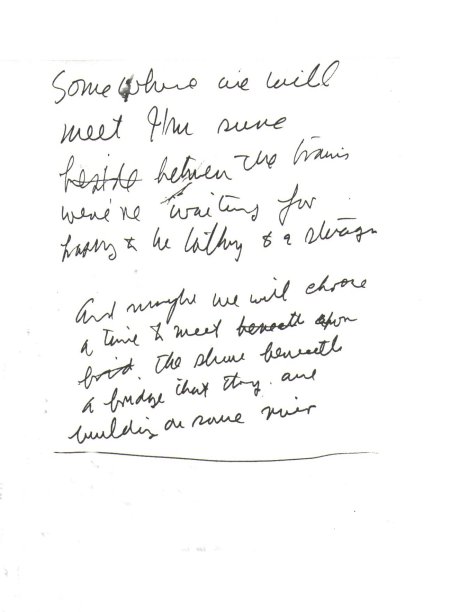 Somewhere we will
meet I'm sure
beside between the trains
we're waiting for
happy to be to a stranger
And maybe we will choose
a time to meet beneath upon
brid the shore beneath
a bridge that they are
building on some river